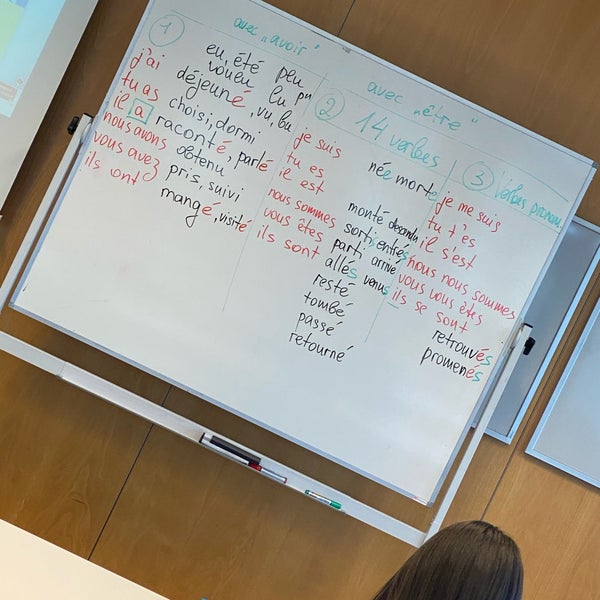 1
avec „avoir"
j'ai
tu as
il a
nous avons
vous avez
ils ont
eu, été peu
voulu lu pu
déjeuné, vu, bu
choisi, dormi
raconté, parlé
obtenu
pris, suivi
mangé, visité
avec „être"
2 14 verbes
je suis
tu es
il est
nous sommes
vous êtes
ils sont
née morte
monté descendu
sorti entrés
parti arrivé
allés venus
resté
tombé
passé
retourné
3 Verbes pronom
je me suis
tu t'es
il s'est
nous nous sommes
vous vous êtes
ils se sont
retrouvés
promenés